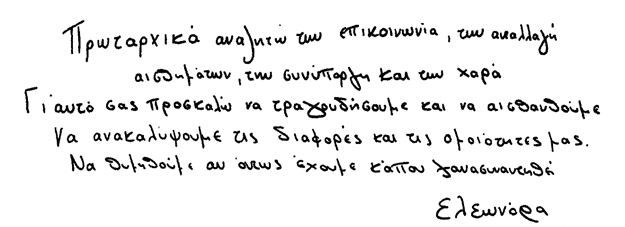 Πρωταρχικά αναζητώ την επικοινωνία, την ανταλλαγή
αισθημάτων, την συνύπαρξη και την χαρά
Γι' αυτό σας προσκαλώ να τραγουδήσουμε και να αισθανθούμε
Να ανακαλύψουμε τις διαφορές και τις ομοιότητες μας.
Να θυμηθούμε αν όπως έχουμε κάπου ξανασυναντηθεί
Ελεωνόρα